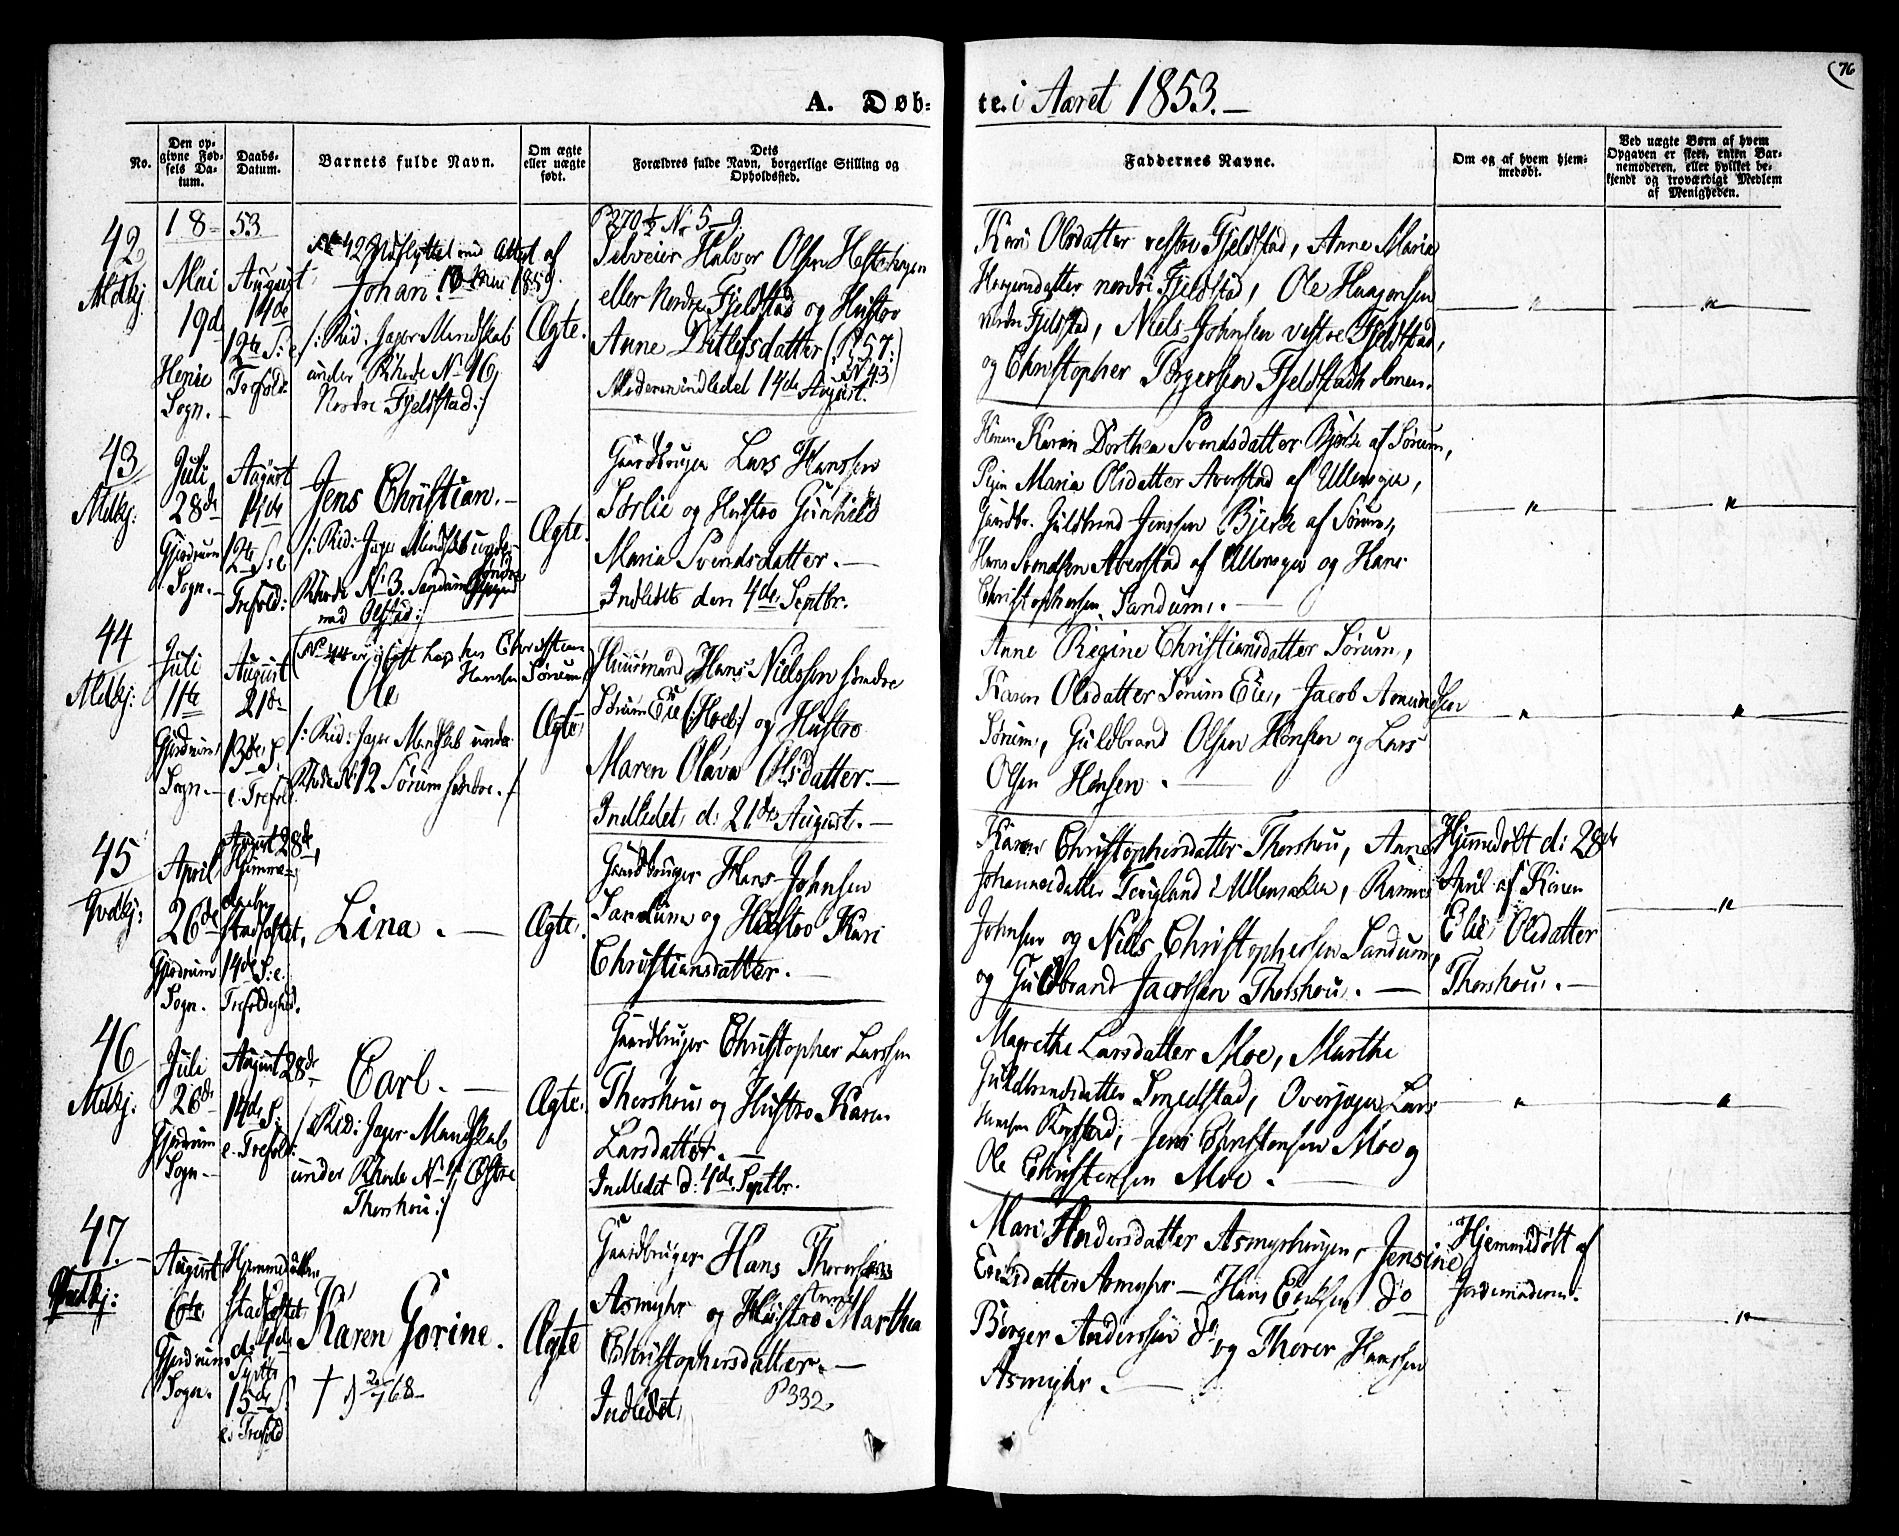 76
A. Døb-
te. i Aaret 1853.
No.
Den opgivne Fødsels Datum.
Daabs-Datum.
Barnets fulde Navn.
Om ægte eller uægte født.
Dets Forældres fulde Navn, borgerlige Stilling og Opholdssted.
Faddernes Navne.
Om og af hvem hjemmedøbt.
Ved uægte Børn af hvem Opgaven er skeet, enten Barnemoderen, eller hvilket bekjendt og troværdigt Medlem af Menigheden.
42
18
Mai
19de
Sogn.
53
August
14de
12te S: e
Trefold:
No 42 Udflyttet med Attest af
Johan.
/: Rid: Jæger Mandskab
under Rhode No 16,
Nordre Fjelsstad :/
Ægte.
P 270 ½ Nr 5-9.
Selveier Halvor Olsen
eller Nordre Fjeldstad og Hustro
Anne Ditlefsdatter (P 57:
No 43)
Moderen indledet 14de August.
Kari Olsdatter vestre Fjeldstad, Anne Maria
nordre Fjeldstad, Ole Haagensen
nordre Fjelsstad, Niels Johnsen vestre Fjeldstad,
og Christopher Torgersen Fjeldstadholmen.
"
"
43
Juli
28de
Gjerdrum
Sogn.
August
14de
12te S: e
Trefold:
Jens Christian.
/: Rid: Jæger Mandskab under
Rhode No 3.
Olstad :/
Ægte.
Gaardbruger Lars Hanssen
Sørlie og Hustro Gunhild
Maria Svendsdatter.
Indledet den 4de Septbr.
Konen Karen Dorthea Svendsdatter Bjerke af Sørum,
Pigen Maria Olsdatter Averstad af Ullensager,
Gaardbr. Guldbrand Jenssen Bjerke af Sørum,
Hans Svendsen Averstad af Ullensager og Hans
Christophersen Sandum.
"
"
44
Juli
11te
Gjerdrum
Sogn.
August
21de
13de S.
e. Trefold.
hos Christian
Hansen Sørum
Ole
/: Rid: Jæger Mandskab under
Rhode No 12 Sørum søndre. /
Ægte
Huusmand Hans Nielssen søndre
Sørum Eie og Hustro
Maren Olava Olsdatter.
Indledet d: 21de August.
Anne Regine Christiansdatter Sørum,
Karen Olsdatter Sørum Eie, Jacob Amundsen
Sørum, Guldbrand Olsen Hønsen og Lars
Olsen Hønsen.
"
"
45
April
26de
Gjerdrum
Sogn.
August 28de,
Hjemme
stadfæstet,
14de S: e.
Trefoldighed.
Lina.
Ægte.
Gaardbruger Hans Johnsen
Sandum og Hustro Kari
Christiansdatter.
Karen Christophersdatter Thorshou, Anne
Johannesdatter i Ullensaker, Rasmus
Johnsen og Niels Christophersen Sandum,
og Guldbrand Jacobsen Thorshou.
Hjemmedøbt d: 28de
April af Konen
Elie Olsdatter
Thorshou.
"
46
Juli
26de
Gjerdrum
Sogn.
August 28de
14de S:
e. Trefold:
Carl.
/: Rid: Jæger Mandskab
under Rhode No 4, Østre
Thorshou :/
Ægte.
Gaardbruger Christopher Larssen
Thorshou og Hustro Karen
Larsdatter.
Indledet d: 4de Septbr.
Magrethe Larsdatter Moe, Marthe
Guldbrandsdatter Smedstad, Lars
Hansen, Jens Christensen Moe og
Ole Christensen Moe.
"
"
47.
August
6te
Gjerdrum
Sogn.
Hjemmedaaben
stadfæstet
d: 4de
Septbr
15de S.
e: Trefold.
Karen Gorine.
Ægte
Gaardbruger Hans Thoresen
Asmyhr og Hustro Marthea
Christophersdatter.
Indledet,
P 332.
Mari Andersdatter Asmyrhaugen, Jensine
Asmyhr — Hans do
Børger Anderssen do og Thorer Hanssen
Asmyhr.
Hjemmedøbt af
Jordemoderen.
"